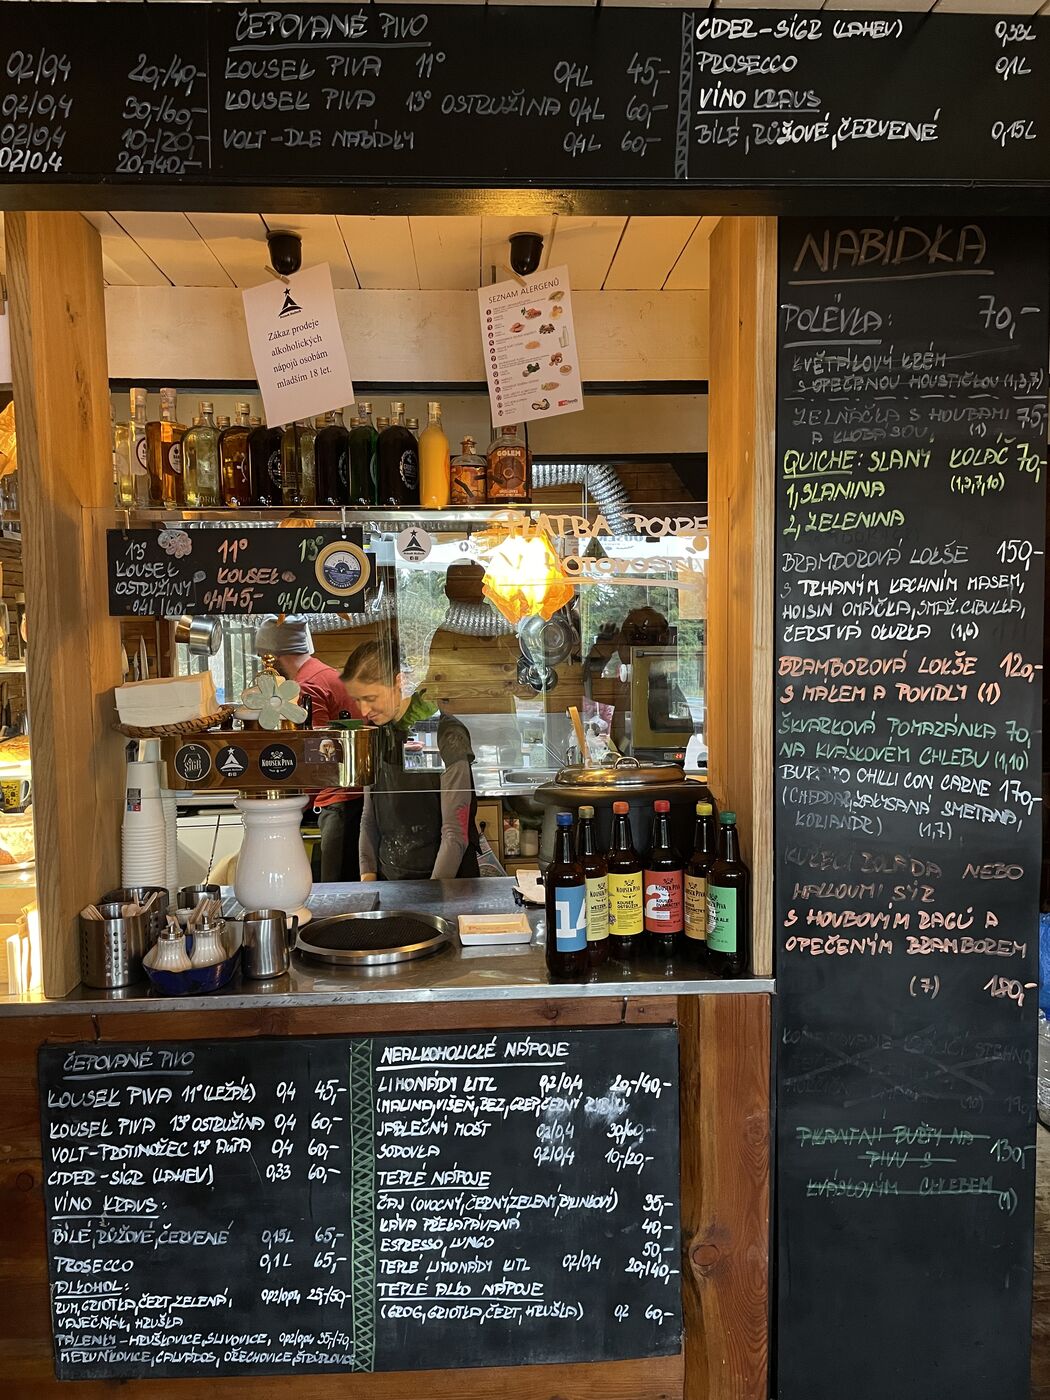 02/04 20,-/40,-
02/0,4 30,-/60,-
02/0,4 10,-/20,-
02/0,4 20,-/40,-
ČEPOVANÉ PIVO
KOUSEK PIVA 11° 0,4L 45,-
KOUSEK PIVA 13° OSTRUŽINA 0,4L 60,-
VOLT-DLE NABÍDKY 0,4L 60,-
CIDER-SÍGR (LAHEV) 0,33L
PROSECCO 0,1L
VÍNO KRAUS
BÍLÉ, RŮŽOVÉ, ČERVENÉ 0,15L
Zákaz prodeje
alkoholických
nápojů osobám
mladším 18 let.
SEZNAM ALERGENŮ
GOLEM
PLATBA POUZE
13° 11° 13°
KOUSEK KOUSEK
OSTRUŽINY 0,4/45,- 0,4/60,-
0,4L/60,-
KOUSEK PIVA
14
NABÍDKA
POLÉVKA: 70,-
KVĚTÁKOVÝ KRÉM
S OPEČENOU HOUSTIČKOU (1,3,7)
ZELŇAČKA S HOUBAMI 75,-
A KLOBÁSOU (1)
QUICHE: SLANÝ KOLÁČ 70,-
1, SLANINA (1,3,7,10)
2, ZELENINA
BRAMBOROVÁ LOKŠE 150,-
S TRHANÝM KACHNÍM MASEM,
HOISIN OMÁČKA, SMAŽ. CIBULKA,
ČERSTVÁ OKURKA (1,6)
BRAMBOROVÁ LOKŠE 120,-
S MÁKEM A POVIDLY (1)
ŠKVARKOVÁ POMAZÁNKA 70,-
NA KVÁSKOVÉM CHLEBU (1,10)
BURITO CHILLI CON CARNE 170,-
(CHEDDAR, ZAKYSANÁ SMETANA,
KORIANDR) (1,7)
NEBO
HALLOUMI SÝR
S HOUBOVÝM RAGÚ A
OPEČENÝM BRAMBOREM
(7) 180,-
PIKANTNÍ BUŘTY NA 130,-
PIVU S
KVÁSKOVÝM CHLEBEM
(1)
ČEPOVANÉ PIVO
KOUSEK PIVA 11° (LEŽÁK) 0,4 45,-
KOUSEK PIVA 13° OSTRUŽINA 0,4 60,-
VOLT-PROTINOŽEC 13° 0,4 60,-
CIDER-SÍGR (LAHEV) 0,33 60,-
VÍNO KRAUS:
BÍLÉ, RŮŽOVÉ, ČERVENÉ 0,15L 65,-
PROSECCO 0,1L 65,-
ALKOHOL:
RUM, GRIOTKA, ČERT, ZELENÁ, 0,02/0,04 25,-/50,-
VAJEČŇÁK, HRUŠKA
PÁLENKY-HRUŠKOVICE, SLIVOVICE, 0,02/0,04 35,-/70,-
MERUŇKOVICE, CALVADOS, OŘECHOVICE,
NEALKOHOLICKÉ NÁPOJE
LIMONÁDY KITL 0,2/0,4 20,-/40,-
(MALINA, VIŠEŇ, BEZ, GREP, ČERNÝ RYBÍZ)
JABLEČNÝ MOŠT 0,2/0,4 30,-/60,-
SODOVKA 0,2/0,4 10,-/20,-
TEPLÉ NÁPOJE
ČAJ (OVOCNÝ, ČERNÝ, ZELENÝ, BYLINKOVÝ) 35,-
KÁVA PŘEKAPÁVANÁ 40,-
ESPRESSO, LUNGO 50,-
TEPLÉ LIMONÁDY KITL 0,2/0,4 20,-/40,-
TEPLÉ ALKO NÁPOJE
(GROG, GRIOTKA, ČERT, HRUŠKA) 0,2 60,-